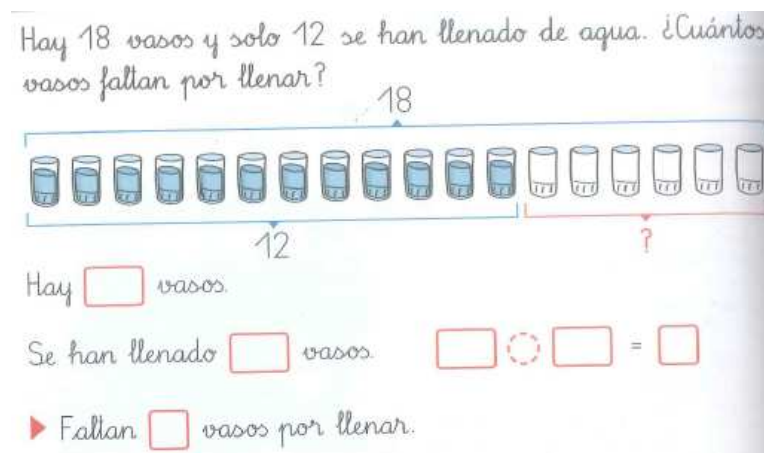 Hay 18 vasos y solo 12 se han llenado de agua. ¿Cuántos
vasos faltan por llenar?
18
12
?
Hay vasos.
Se han llenado vasos. =
Faltan vasos por llenar.